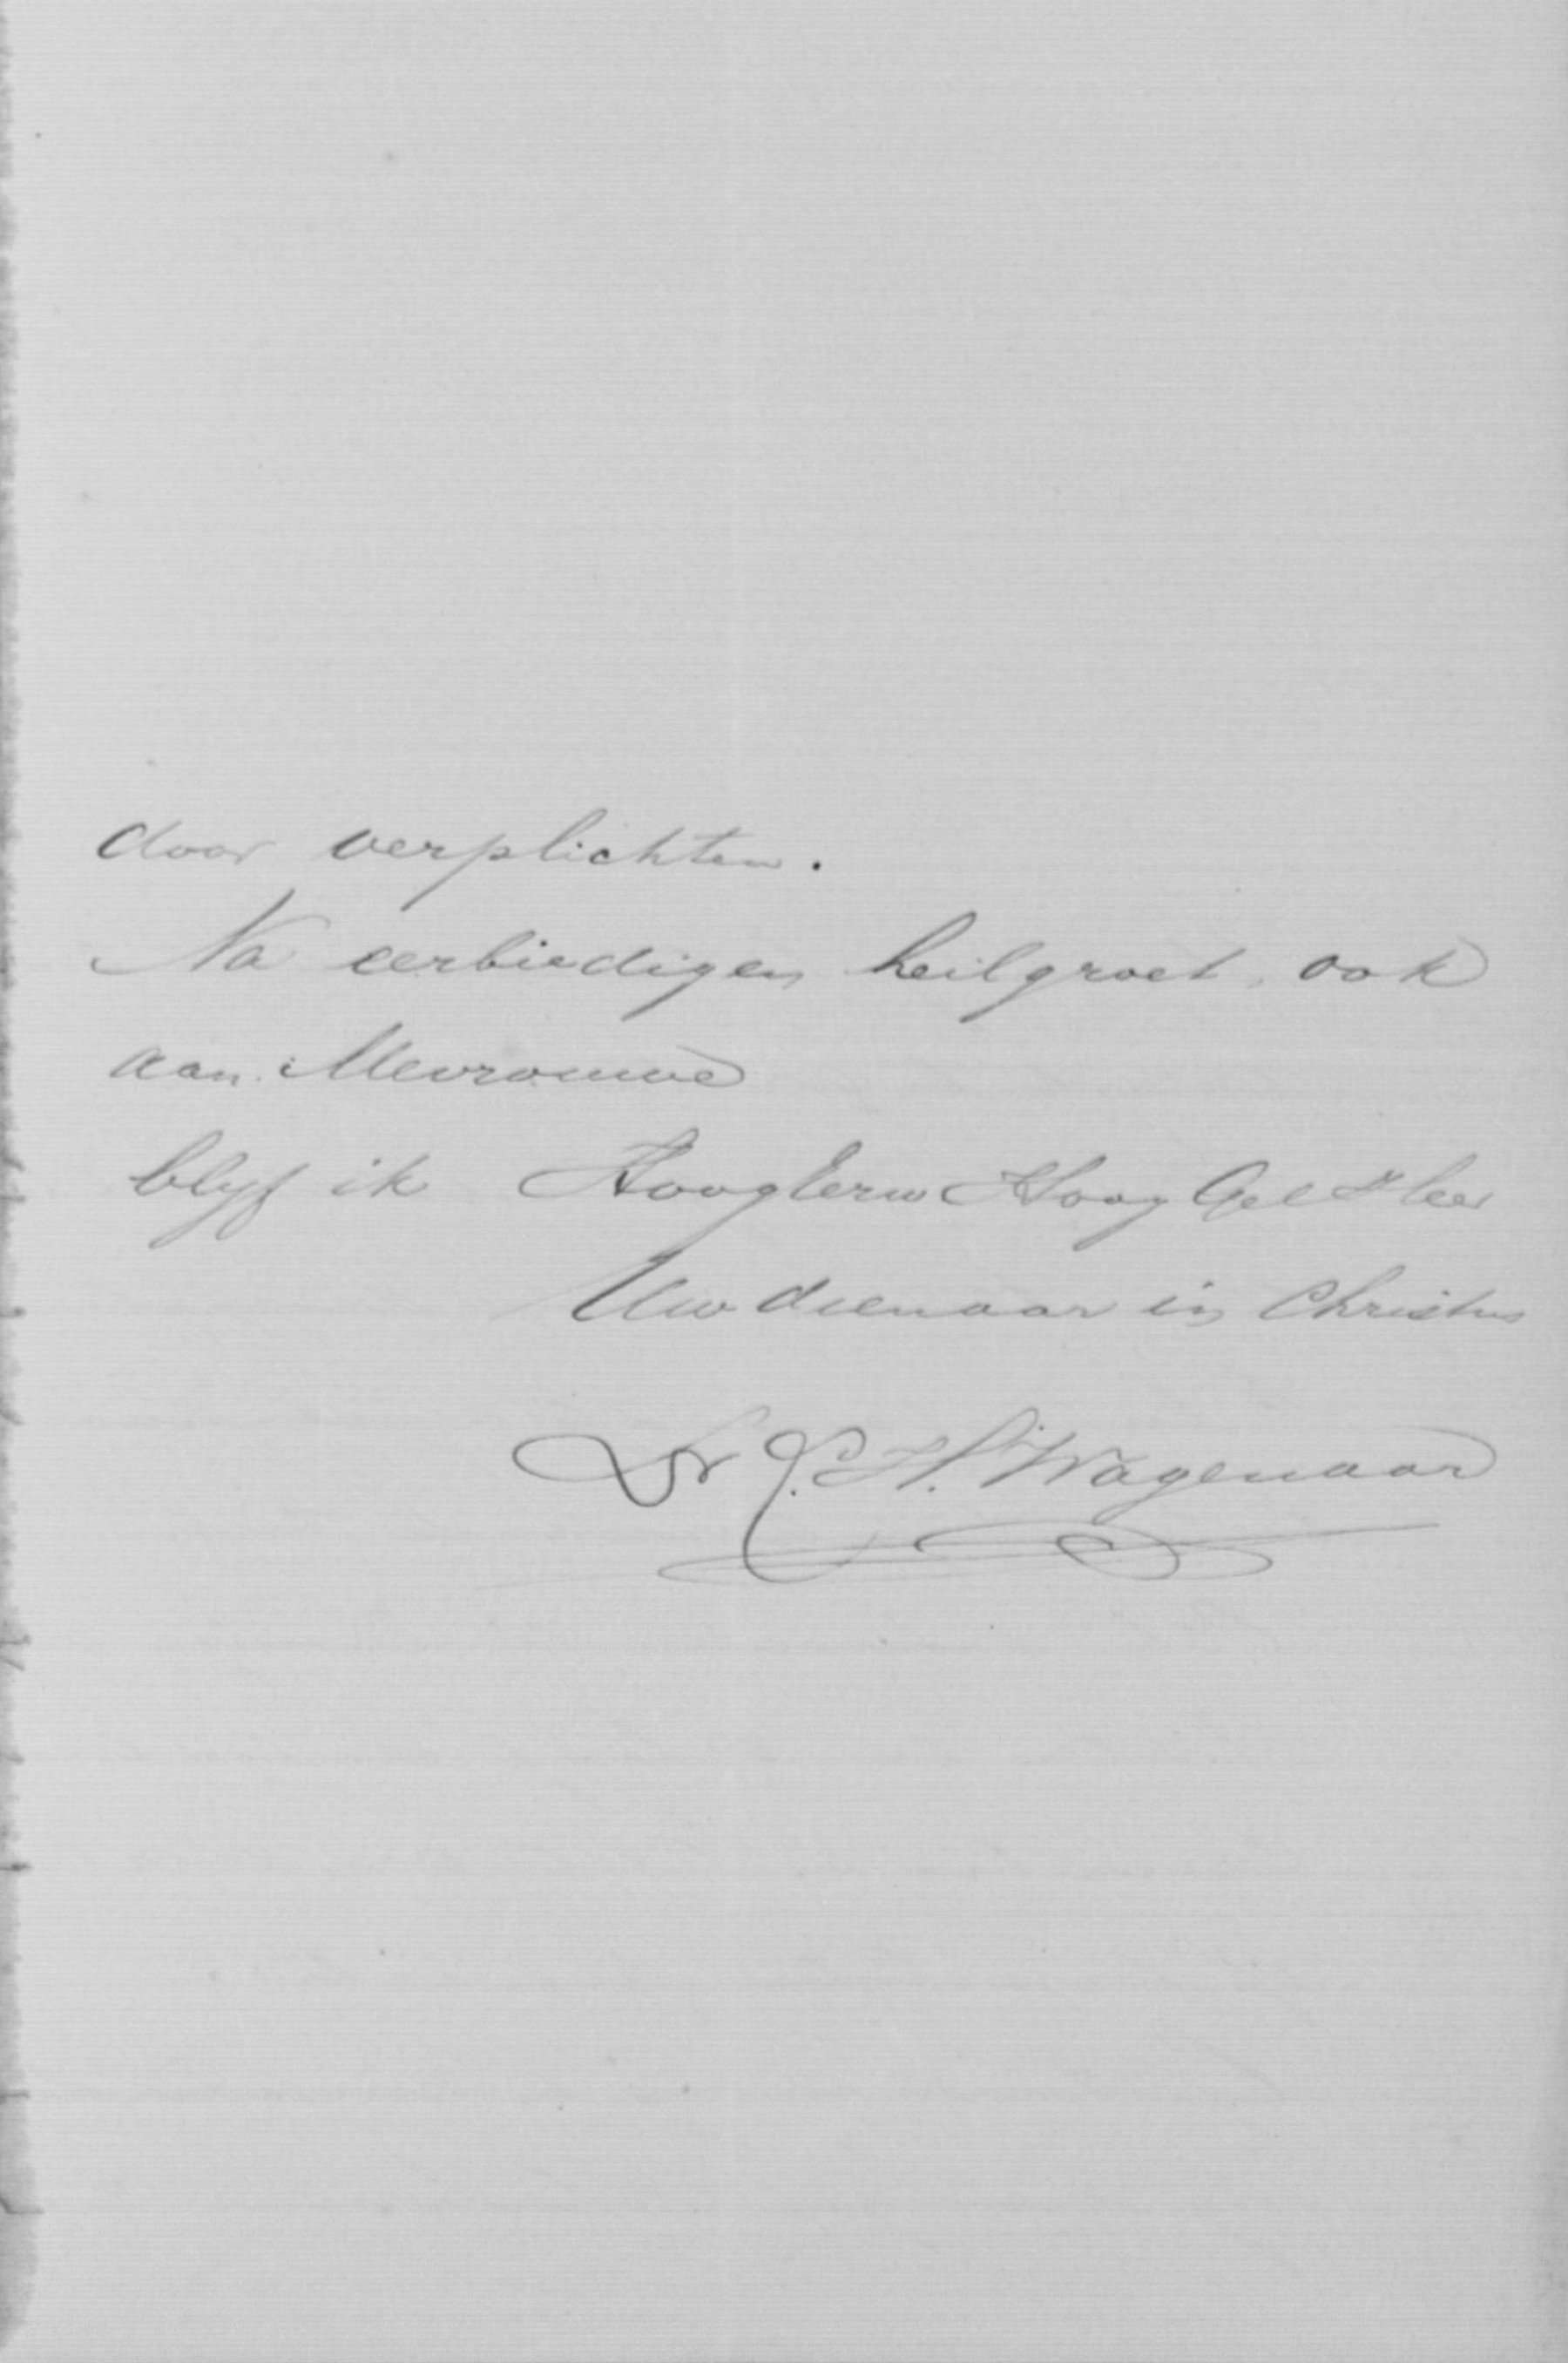 door verplichten.
Na eerbiedigen heilgroet, ook
aan Mevrouwe
blijf ik HoogEerw Hoog Gel Heer
Uw dienaar in Christus
Dr L. H. Wagenaar